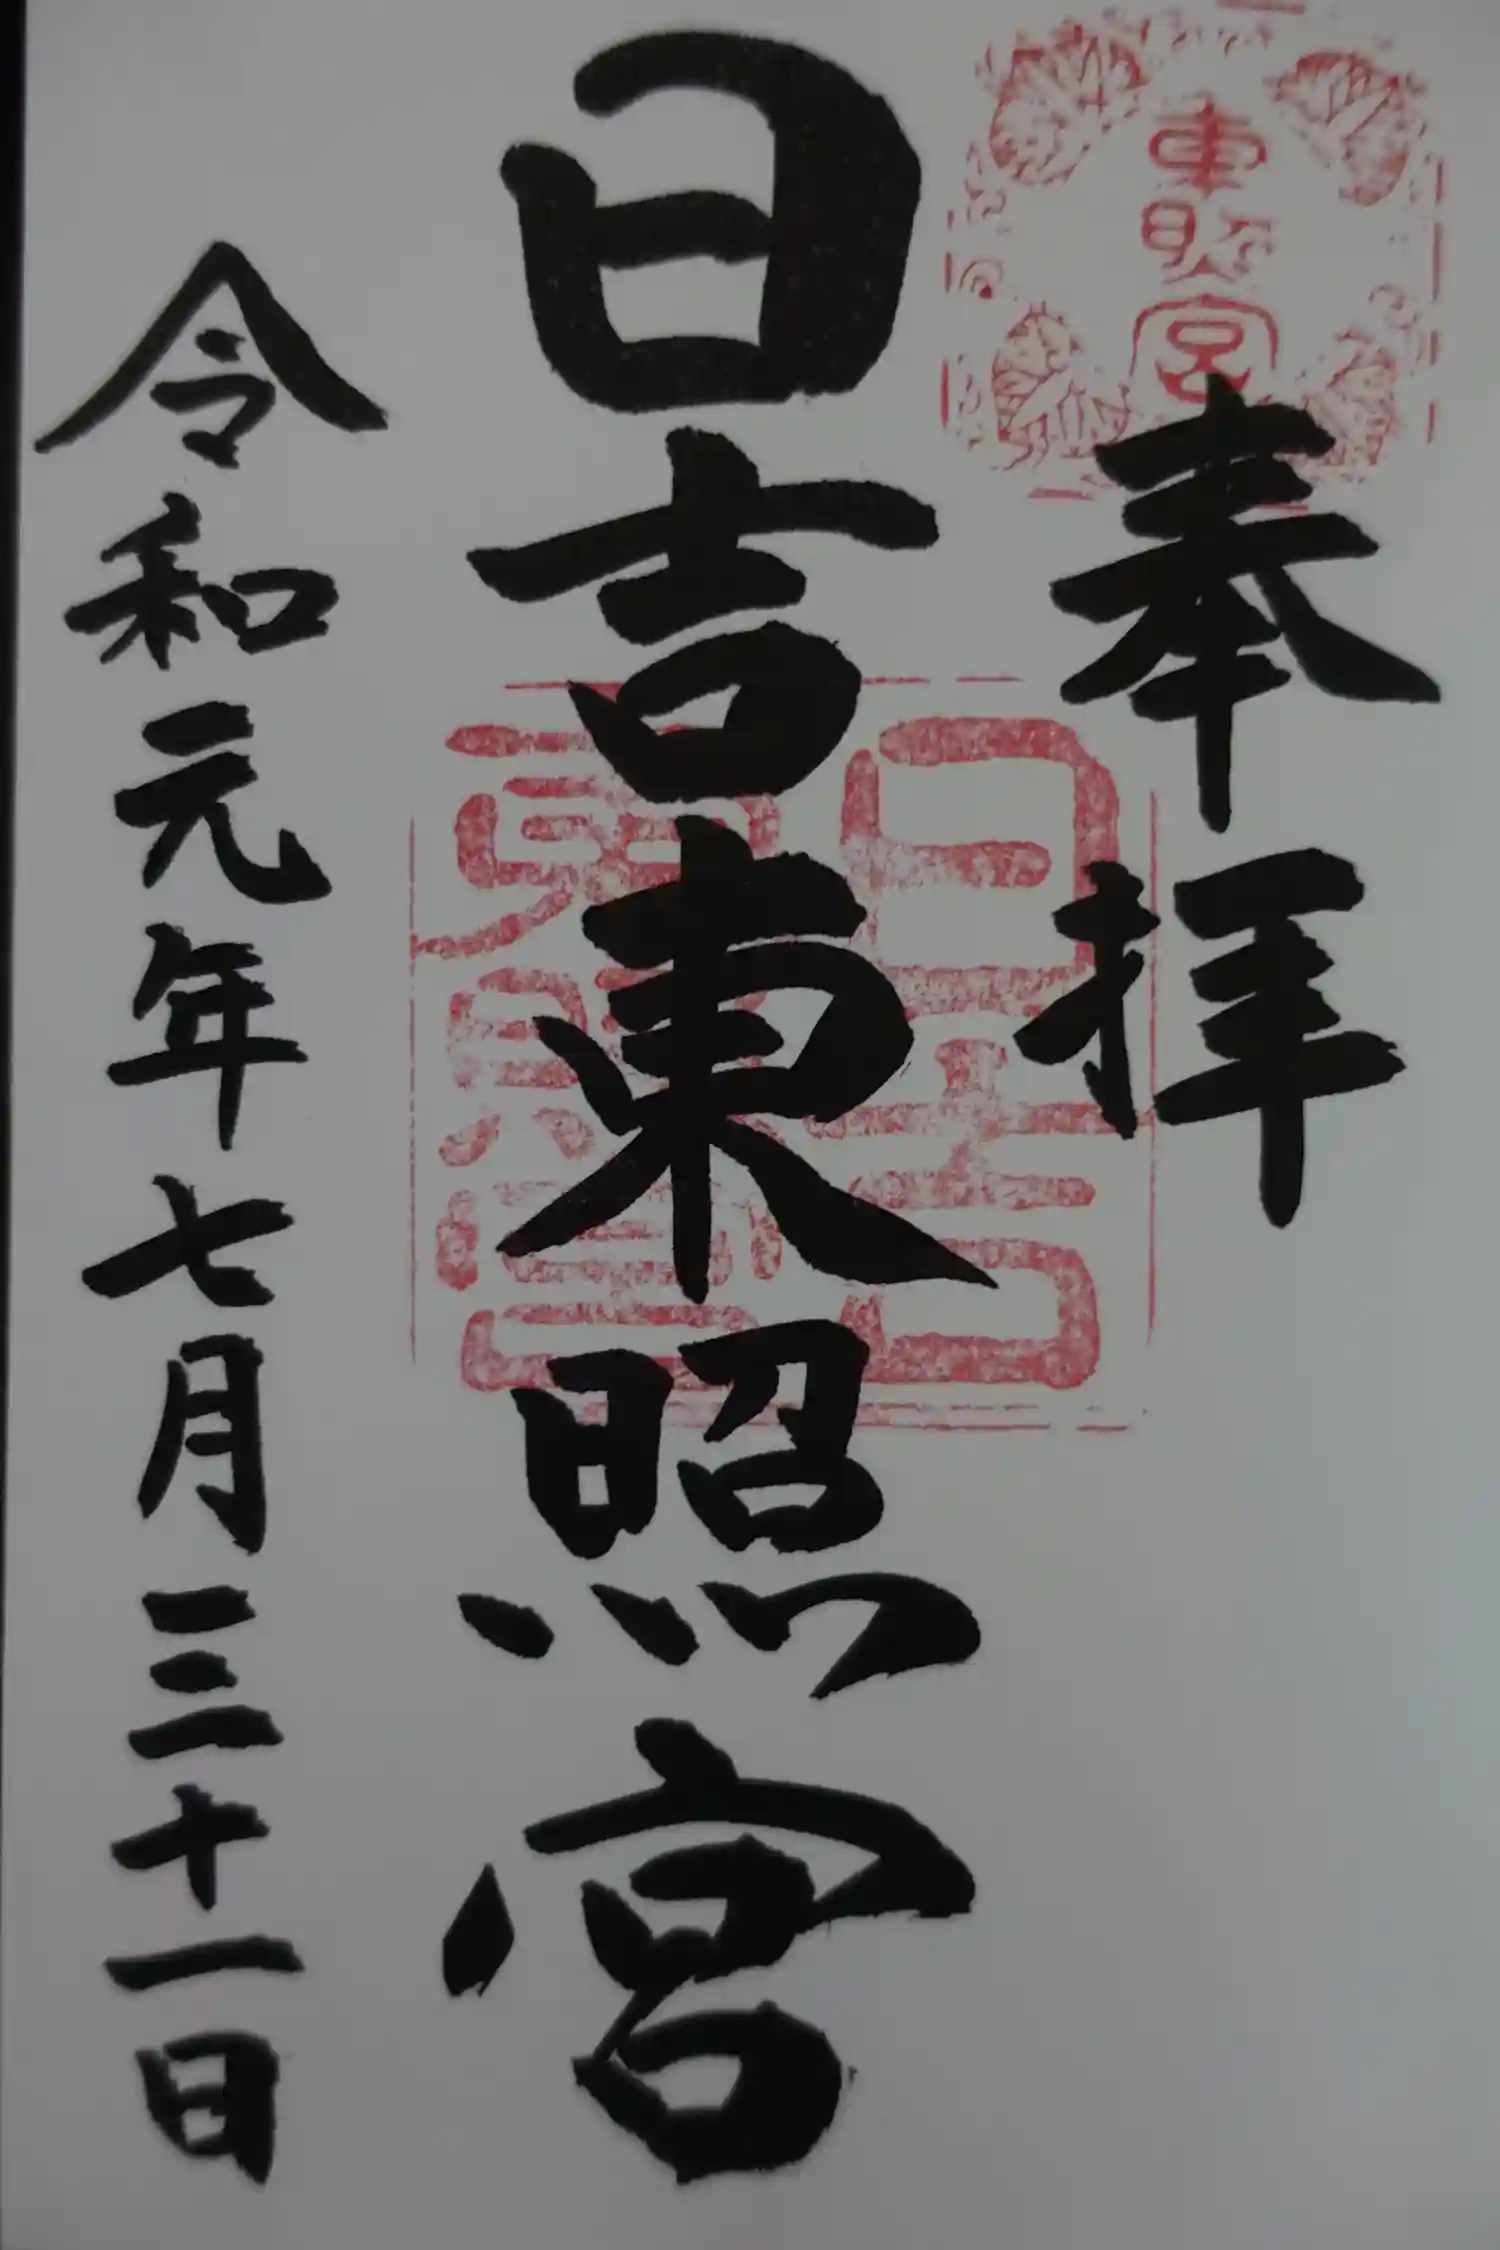 東照宮
奉拝
日吉東照宮
日吉
東照宮
令和元年七月三十一日